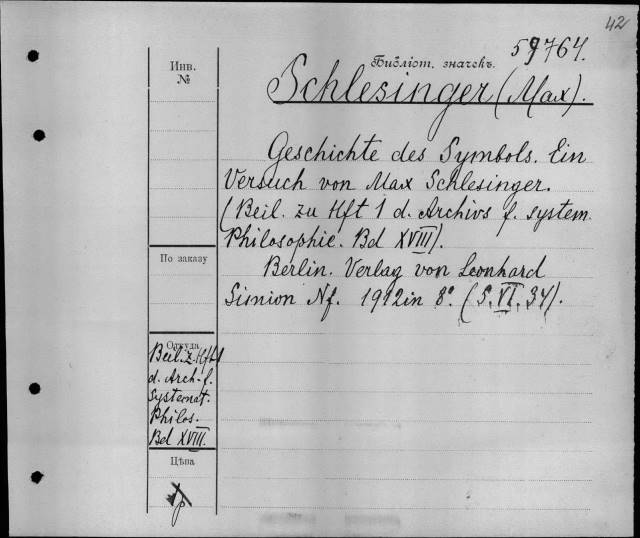 42
59764.
Инв.
№
Библіот. значекъ.
Schlesinger (Max).
Geschichte des Symbols. Ein
Versuch von Max Schlesinger.
(Beil. zu Hft 1 d. Archivs f. system.
Philosophie. Bd XVIII).
Berlin. Verlag von Leonhard
Simion Nf. 1912 in 8°. (S. VI, 34).
По заказу
Откуда
Beil. z. Hft 1
d. Arch. f.
Systemat.
Philos.
Bd XVIII.
Цѣна